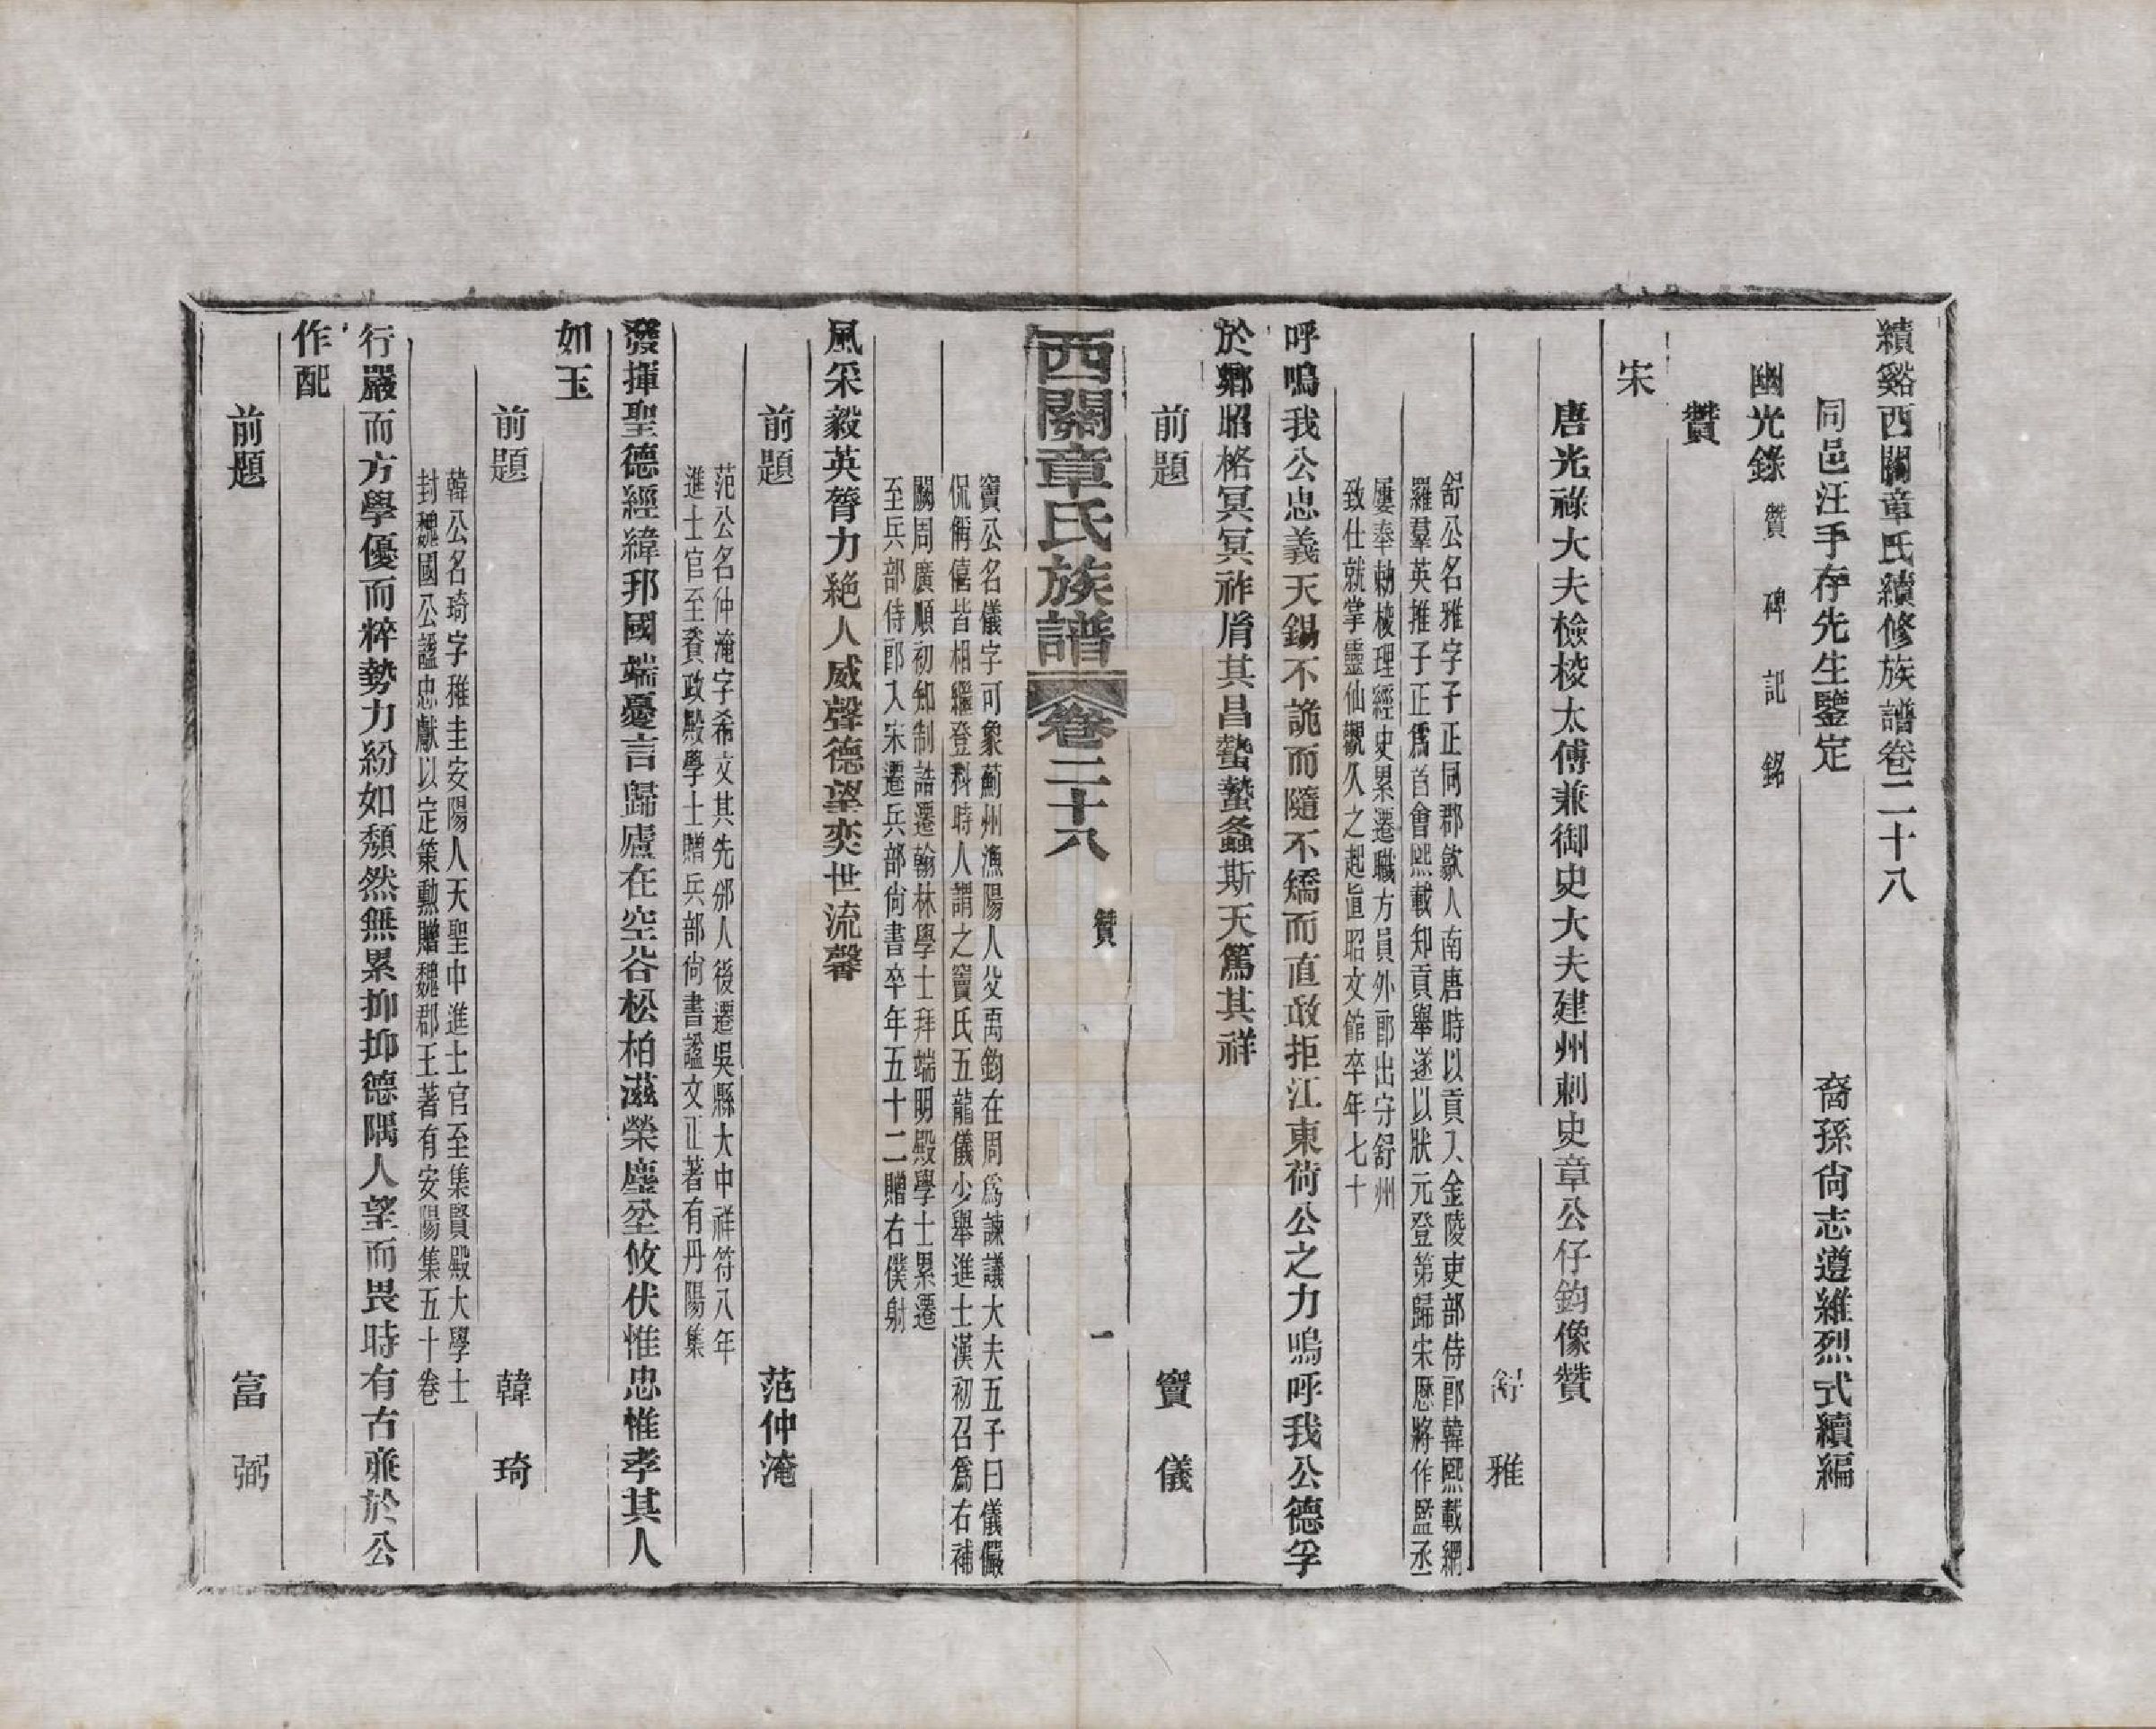 績谿西關章氏續修族譜卷二十八
同邑汪手存先生鑒定　裔孫尚志遵維烈式續編
幽光錄贊　碑　記　銘
贊
宋
唐光祿大夫檢校太傅兼御史大夫建州刺史章公仔鈞像贊
舒　雅
舒公名雅字子正同郡歙人南唐時以貢入金陵吏部侍郎韓熙載網
羅羣英推子正爲首會熙載知貢舉遂以狀元登第歸宋歷將作監丞
屢奉勑校理經史累遷職方員外郎出守舒州
致仕就掌靈仙觀久之起直昭文館卒年七十
呼嗚我公忠義天錫不詭而隨不矯而直敢拒江東荷公之力嗚呼我公德孚
於鄉昭格冥冥祚胤其昌蟄蟄螽斯天篤其祥
前題　竇　儀
西關章氏族譜　卷二十八　贊　一
竇公名儀字可象薊州漁陽人父禹鈞在周爲諫議大夫五子曰儀儼
侃偁僖皆相繼登科時人謂之竇氏五龍儀少舉進士漢初召爲右補
闕周廣順初知制誥遷翰林學士拜端明殿學士累遷
至兵部侍郎入宋遷兵部尙書卒年五十二贈右僕射
風采毅英膂力絕人威聲德望奕世流馨
前題　范仲淹
范公名仲淹字希文其先邠人後遷吳縣大中祥符八年
進士官至叅政殿學士贈兵部尙書謚文正著有丹陽集
發揮聖德經緯邦國端憂言歸廬在空谷松柏滋榮塵坌攸伏惟忠惟孝其人
如玉
前題　韓　琦
韓公名琦字稚圭安陽人天聖中進士官至集賢殿大學士
封魏國公謚忠獻以定策勳贈魏郡王著有安陽集五十卷
行嚴而方學優而粹勢力紛如頹然無累抑抑德隅人望而畏時有古兼於公
作配
前題　富　弼